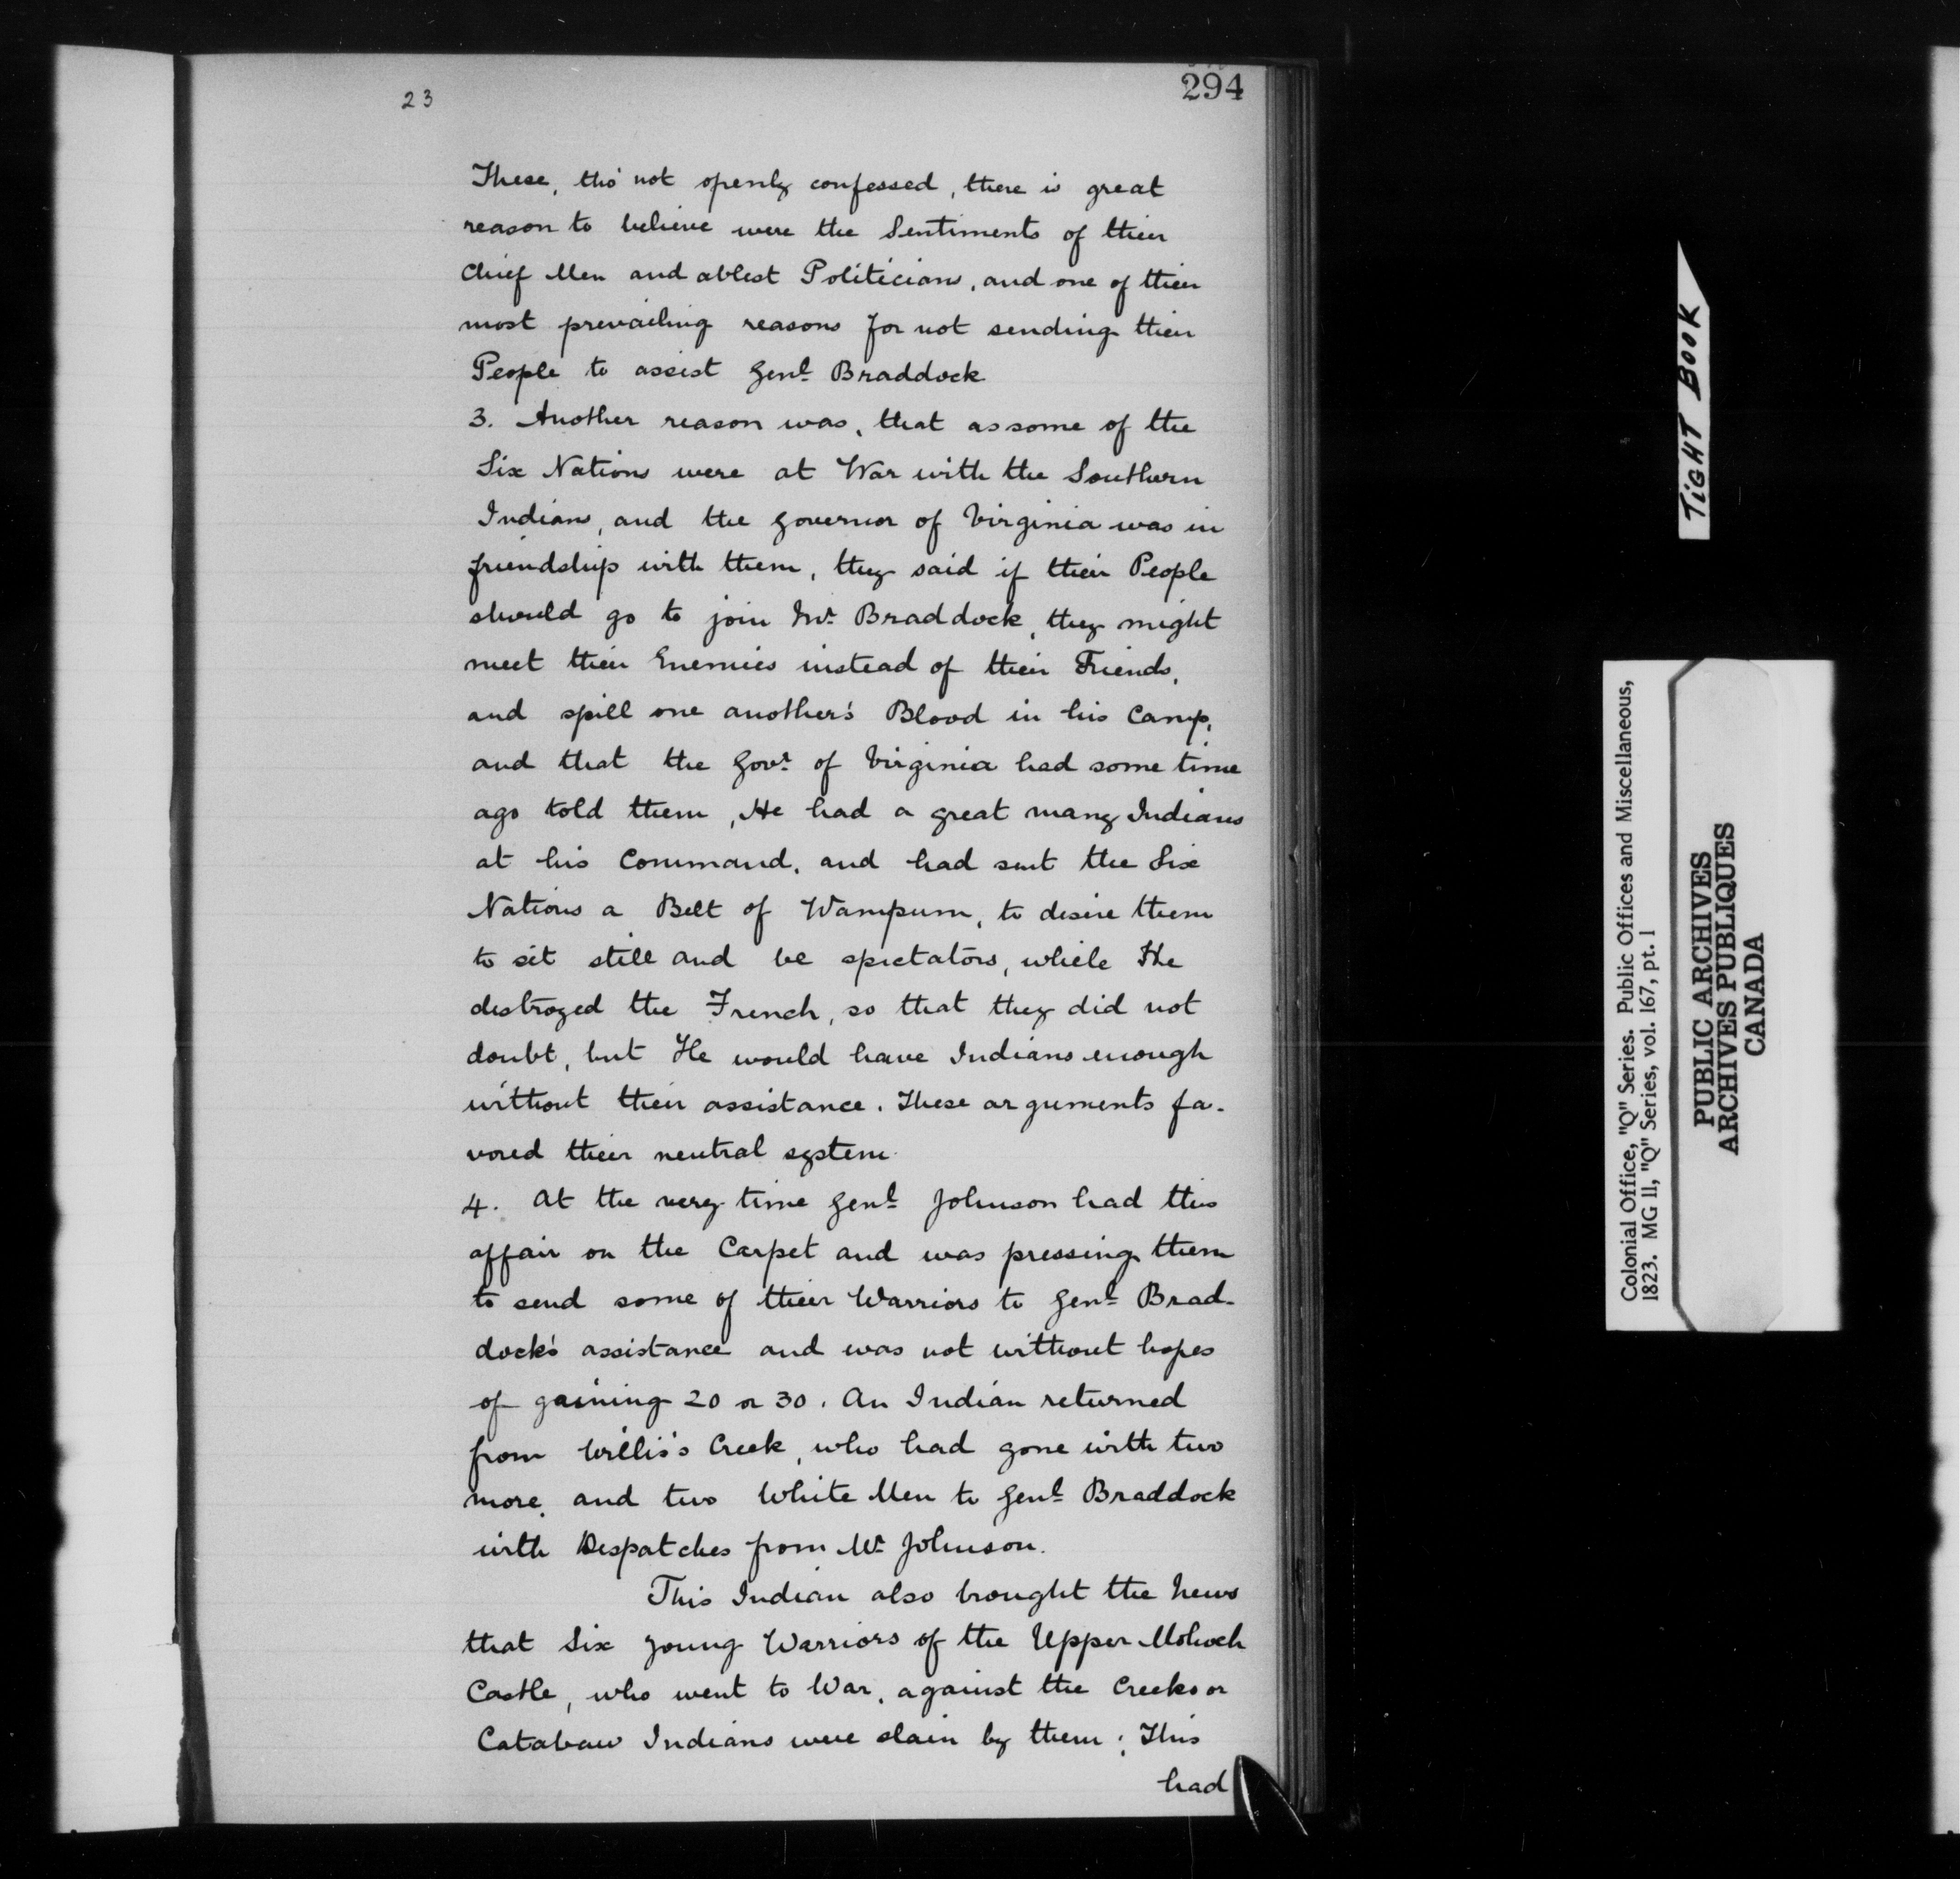 23
294
These, tho' not openly confessed, there is great
reason to believe were the Sentiments of their
Chief Men and ablest Politicians, and one of their
most prevailing reasons for not sending their
People to assist Genl Braddock
3. Another reason was, that as some of the
Six Nations were at War with the Southern
Indians, and the Governor of Virginia was in
friendship with them, they said if their People
should go to join Mr. Braddock, they might
meet their Enemies instead of their Friends,
and spill one another's Blood in his Camp,
and that the Govr. of Virginia had some time
ago told them, He had a great many Indians
at his Command, and had sent the Six
Nations a Belt of Wampum, to desire them
to sit still and be spectators, while He
destroyed the French, so that they did not
doubt, but He would have Indians enough
without their assistance. These arguments fa-
vored their neutral system.
4. At the very time Genl Johnson had this
affair on the Carpet and was pressing them
to send some of their Warriors to Genl Brad-
dock's assistance and was not without hopes
of gaining 20 or 30. An Indian returned
from Willis's Creek, who had gone with two
more, and two White Men to Genl Braddock
with Despatches from Mr. Johnson.
This Indian also brought the News
that Six young Warriors of the Upper Mohock
Castle, who went to War, against the Creeks or
Catabaw Indians were slain by them; This
had
TIGHT BOOK
Colonial Office, "Q" Series. Public Offices and Miscellaneous,
1823. MG 11, "Q" Series, vol. 167, pt. 1
PUBLIC ARCHIVES
ARCHIVES PUBLIQUES
CANADA